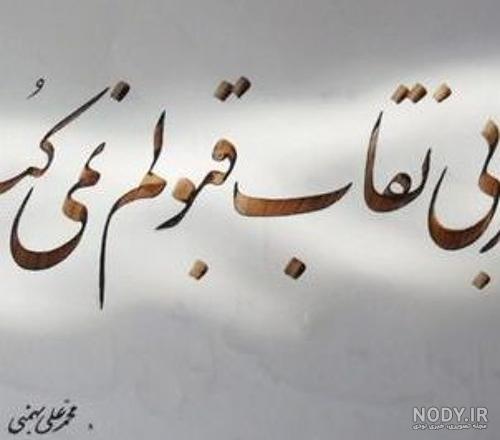 بی نقاب قبولم نمی
محمدعلی بهمنی
NODY.IR
مجله تصویری، خبری نودی